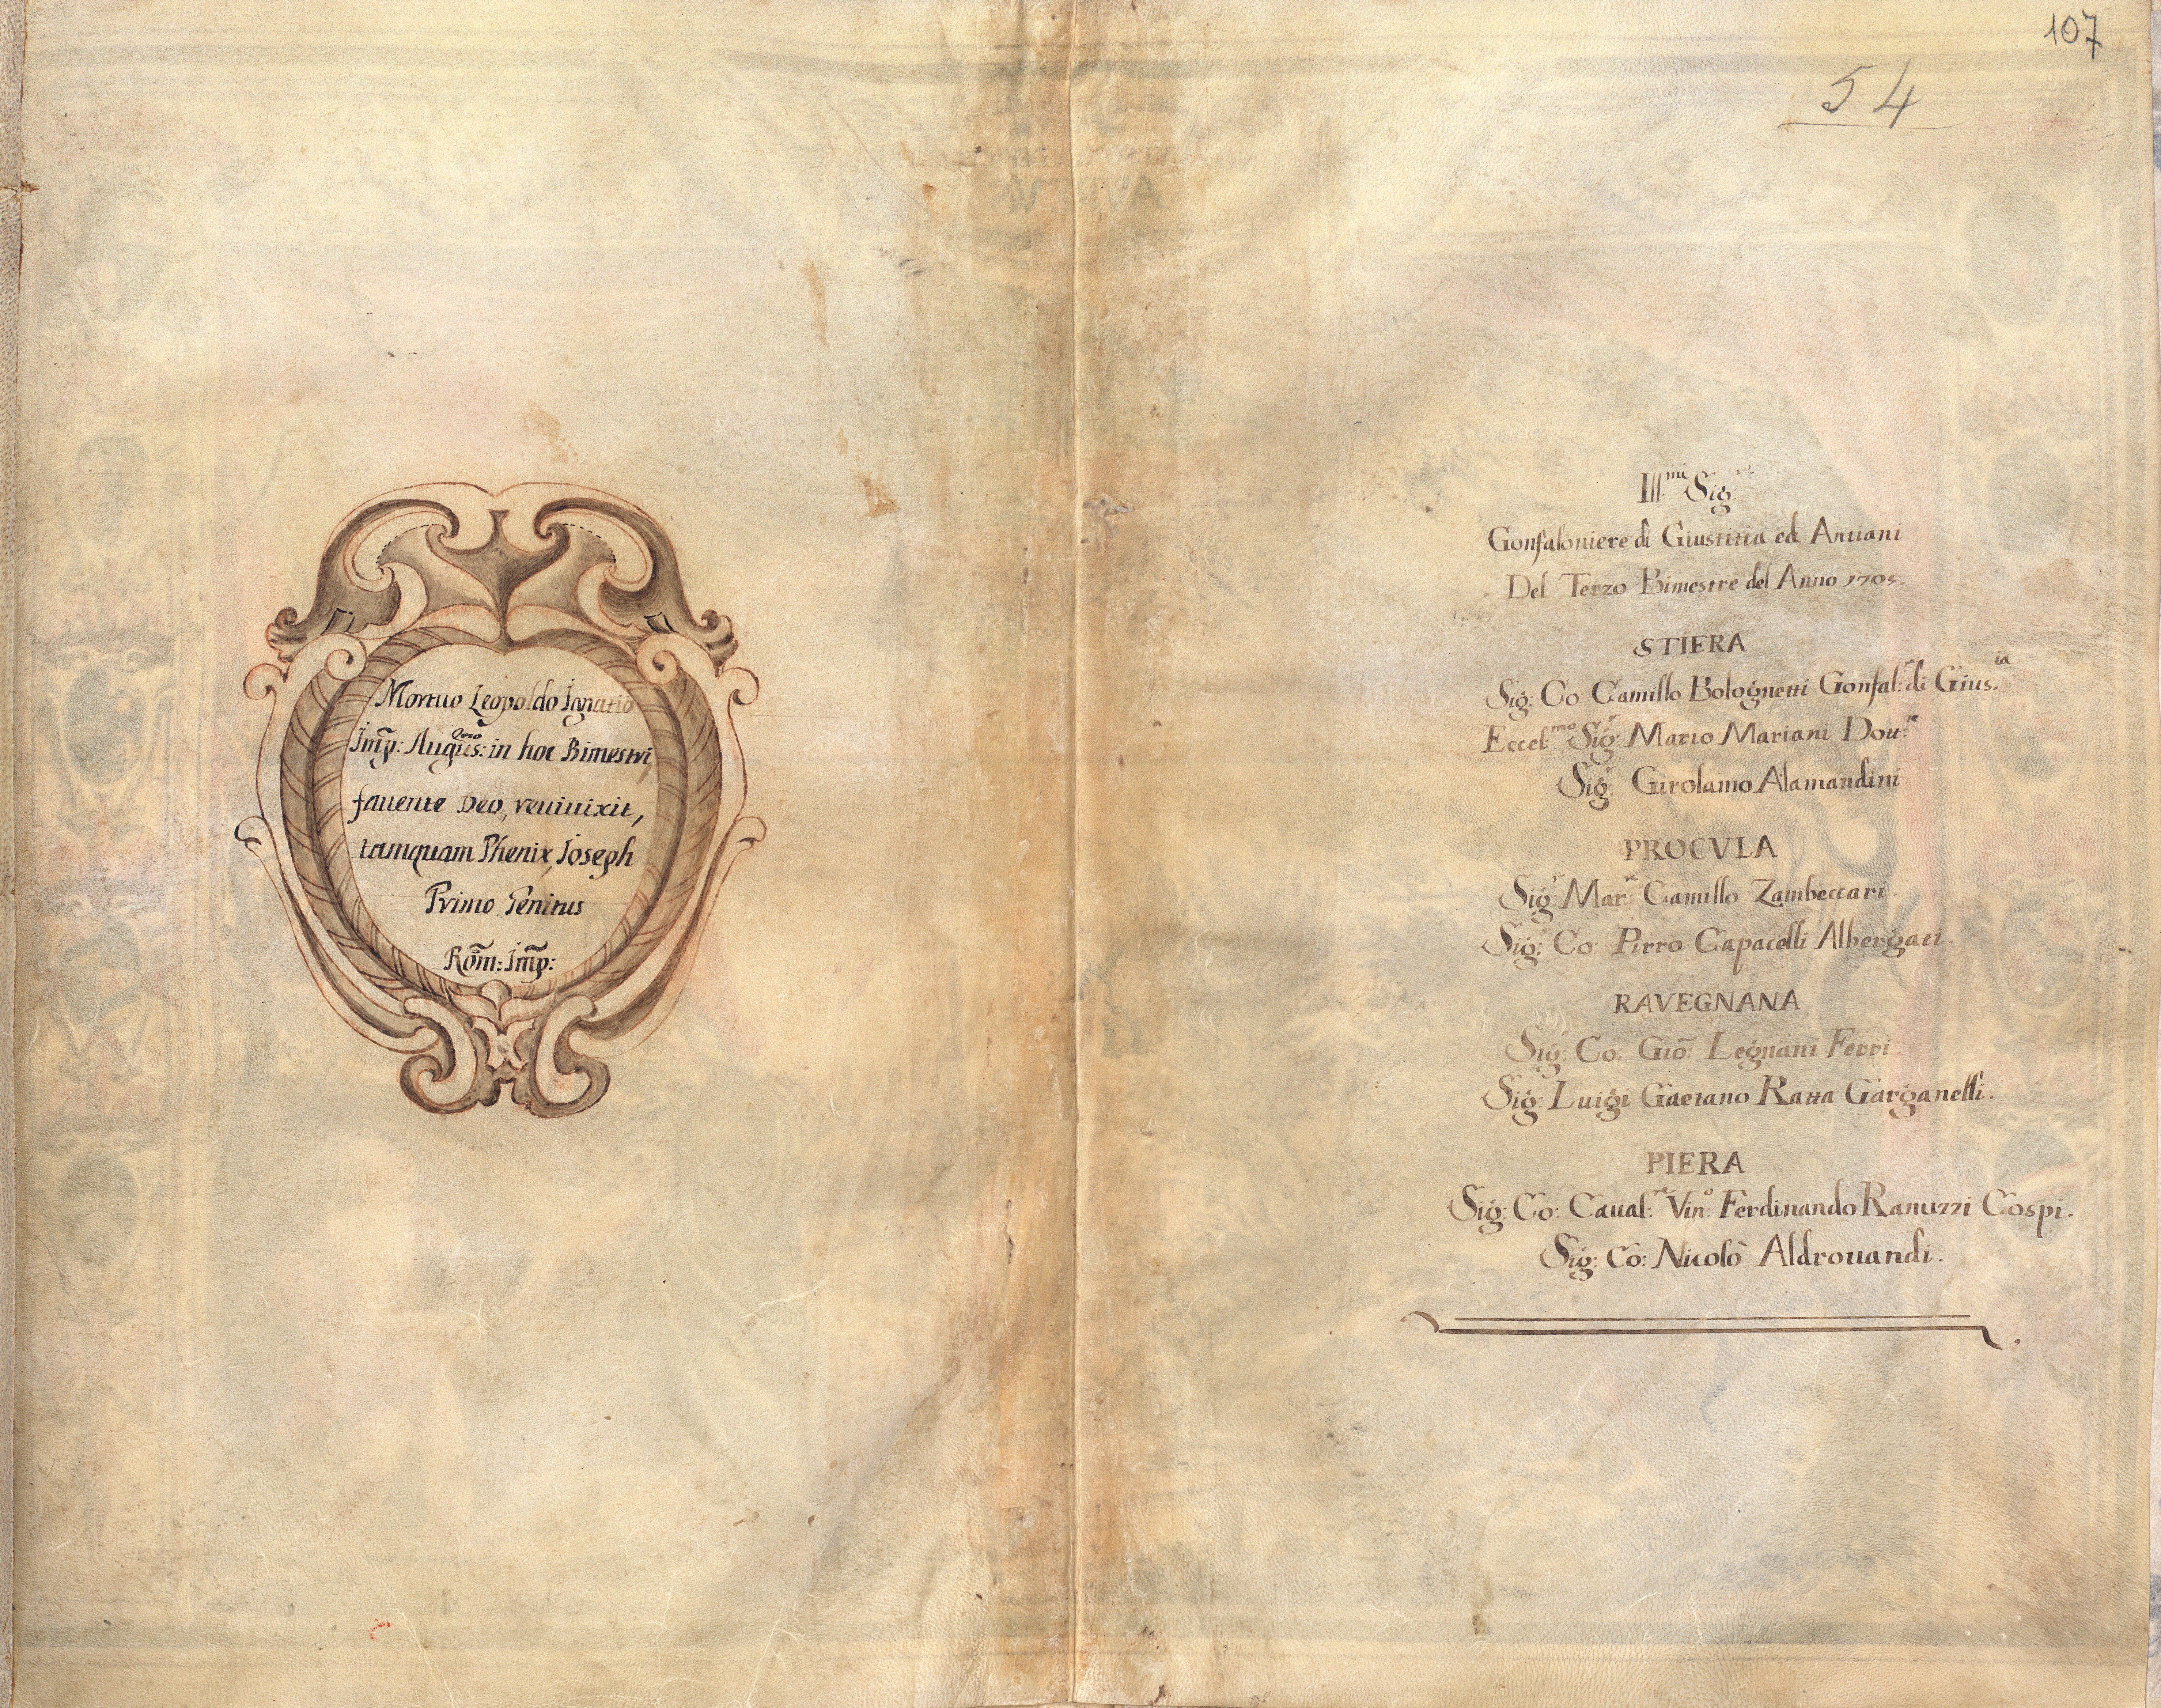 Mortuo Leopoldo Ignatio
Imp: Augus: in hoc Bimestri
fauente Deo, reuiuixit,
tamquam Phenix, Joseph
Primo Genitus
Rom̃: Imp̃:
107
54
Ill.mi Sig.ri
Gonfaloniere di Giustitia ed Antiani
Del Terzo Bimestre del Anno 1705.
STIERA
Sig: Co: Camillo Bolognetti Gonfal:re di Gius.ia
Eccel.mo Sig.r Mario Mariani Dott.re
Sig.r Girolamo Alamandini
PROCVLA
Sig.r Mar.se Camillo Zambeccari.
Sig.r Co: Pirro Capacelli Albergati.
RAVEGNANA
Sig: Co: Giõ: Legnani Ferri
Sig: Luigi Gaetano Ratta Garganelli.
PIERA
Sig: Co: Caual:re Vin:o Ferdinando Ranuzzi Cospi.
Sig: Co: Nicolò Aldrouandi.